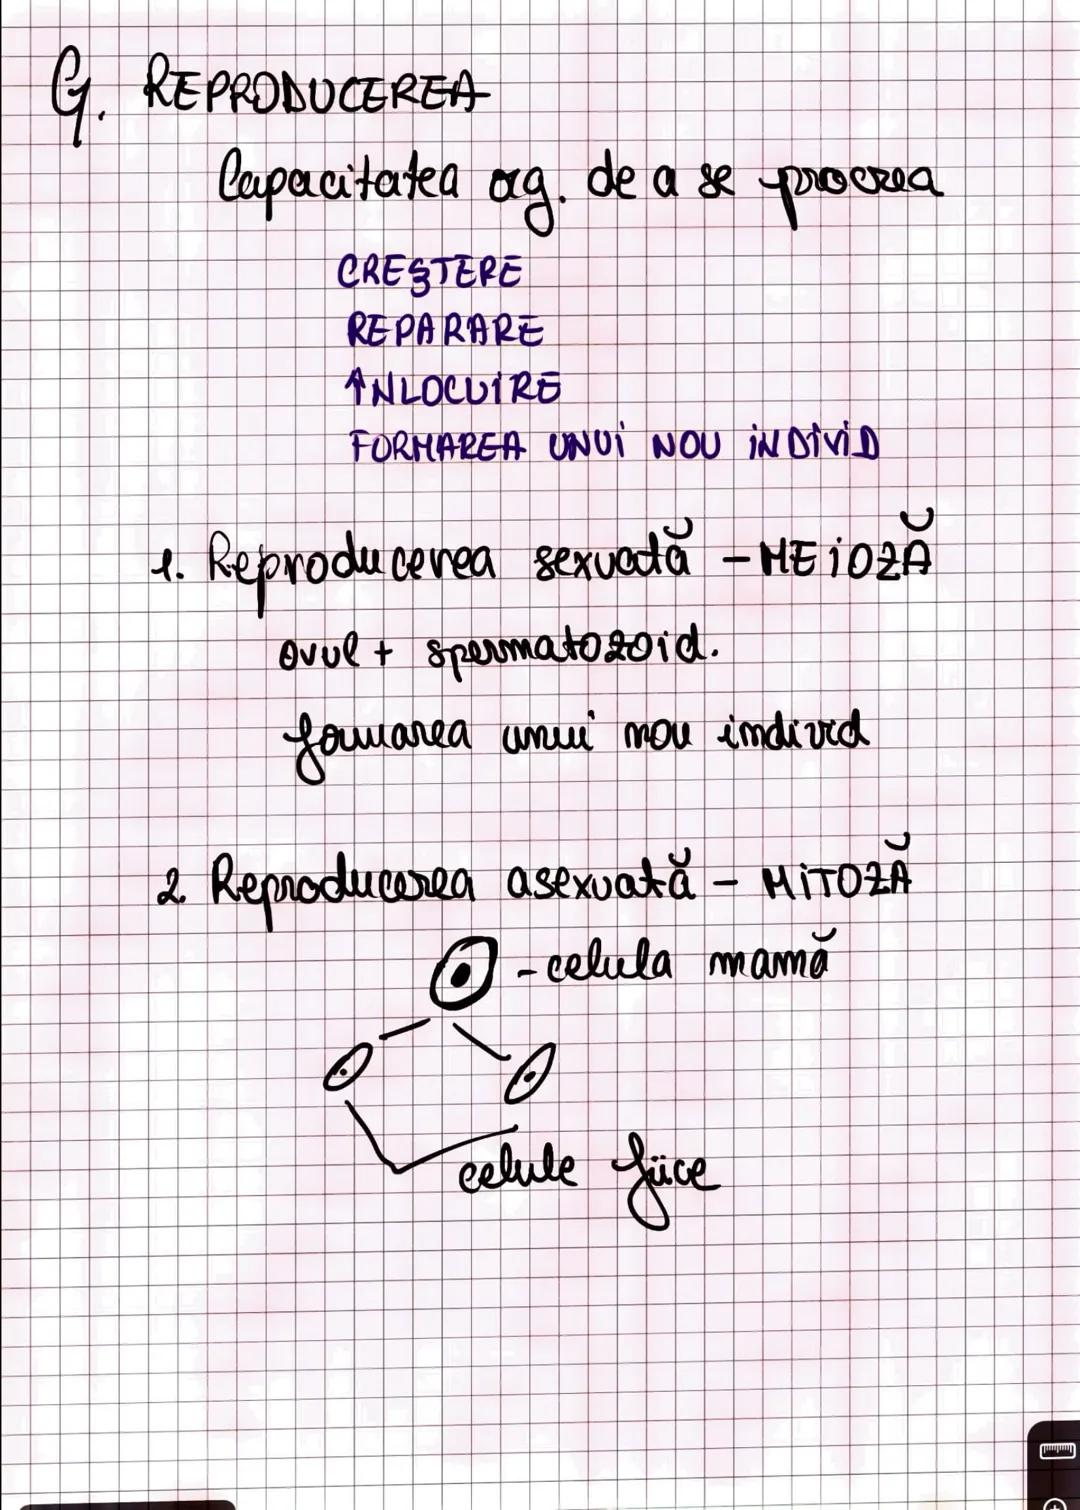 G. REPRODUCEREA
Capacitatea org. de a se procrea
CREȘTERE
REPARARE
ÎNLOCUIRE
FORMAREA UNUI NOU INDIVID
1. Reproducerea sexuată - MEIOZĂ
ovul + spermatozoid.
formarea unui nou individ
2. Reproducerea asexuată - MITOZĂ
- celula mamă
celule fiice